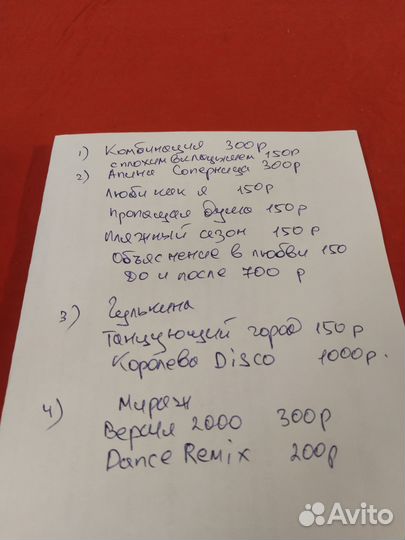 1) Комбинация 300р
с плохим вкладышем 150р
2) Апина Соперница 300р
Люби как я 150р
Пропащая душа 150р
Пляжный сезон 150р
Объяснение в любви 150
До и после 700 р
3) Гулькина
Танцующий город 150р
Королева Disco 1000р.
4) Мираж
Версия 2000 300р
Dance Remix 200р
Avito